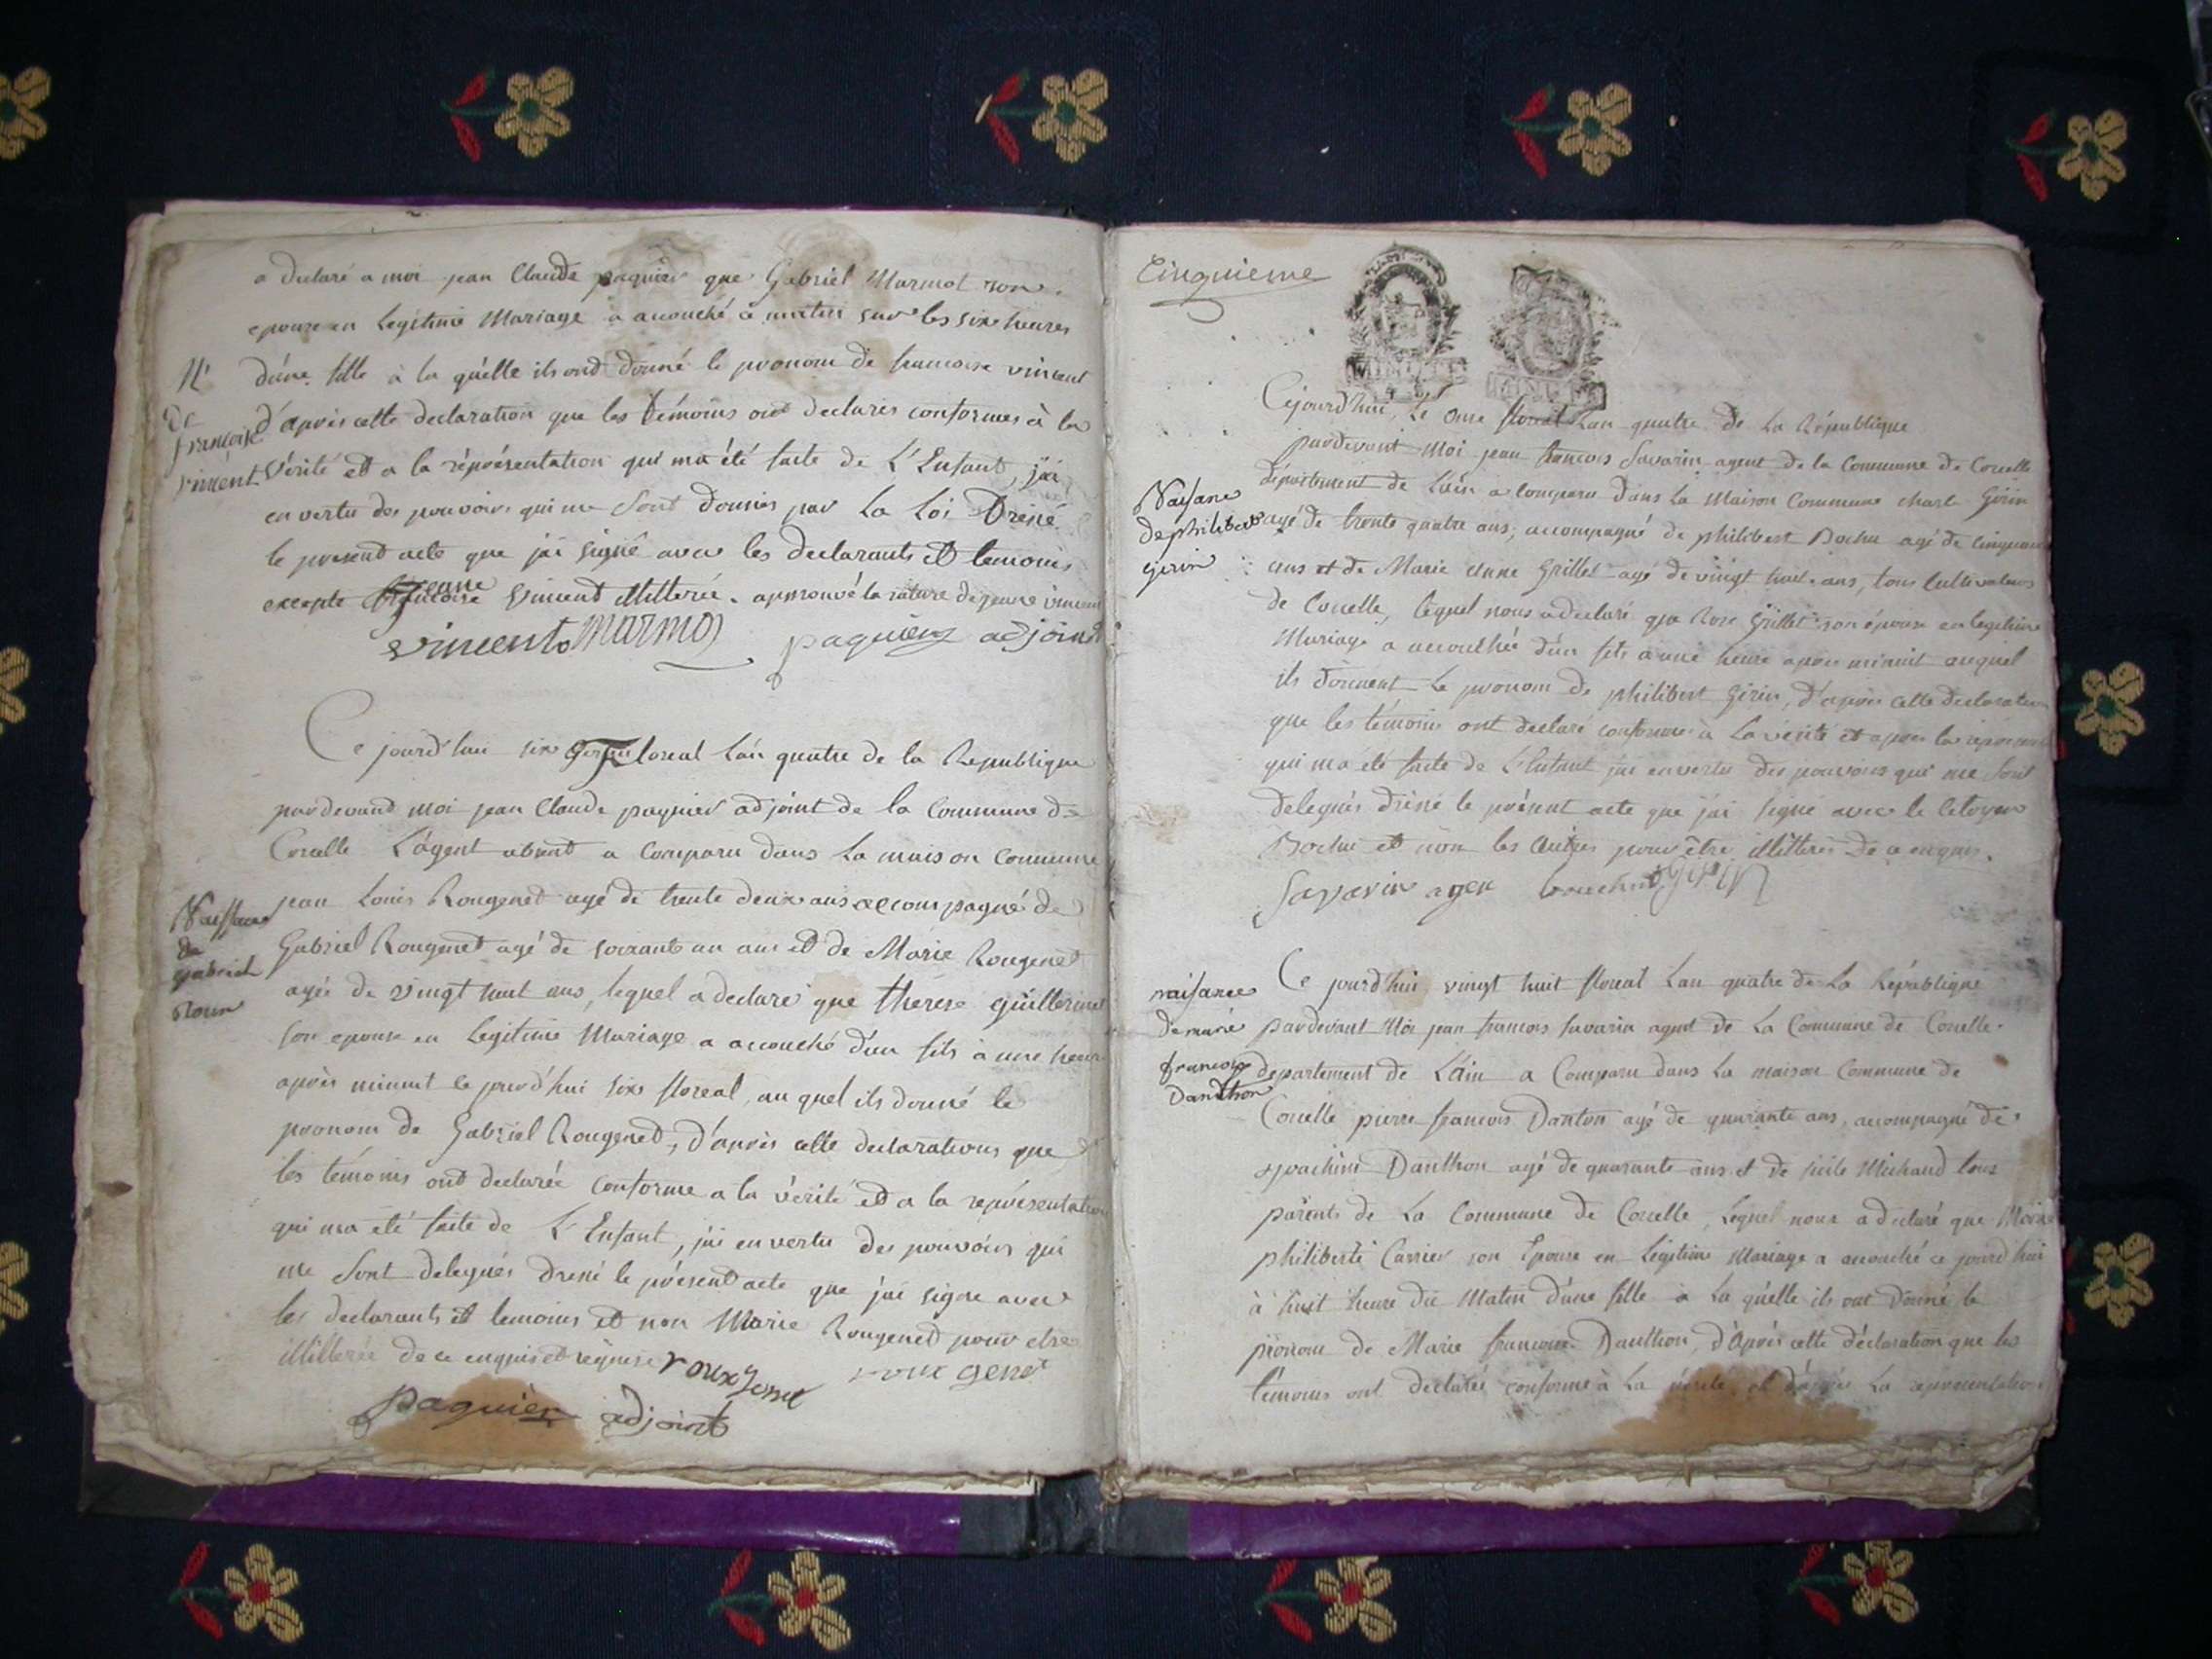 a declaré a moi jean Claude paquier que Gabriel Marmot son
epouse en Legitime Mariage a accouché ce matin sur les six heures
N.ce
de
françoise
vincent
d'une fille à la quelle ils ond donné le pronom de francoise vincent
d'après cette declaration que les temoins ont declarés conformes à la
vérité et a la réprésentation qui ma été faite de L'Enfant, j'ai
en vertu des pouvoirs qui me sont donnés par La Loi Dressé
le present acte que j'ai signé avec les declarants et temoins
excepte jeanne vincent illitterée. approuvé la rature de jeanne vincent
vincent Marmot paquier adjoint
Ce jourd'hui six floreal L'an quatre de la Republique
pardevand moi jean Claude paquier adjoint de la Commune de
Corcelle L'agent absent a Comparu dans La maison Commune
Naissance
de
gabriel
Roux
jean Louis Rougened agé de trente deux ans accompagné de
Gabriel Rougened agé de soixante un ans et de Marie Rougened
agée de vingt huit ans, lequel a declaré que therese guillermet
son epouse en Legitime Mariage a accouché d'un fils à une heure
après minuit ce jourd'hui six floreal, au quel ils donné le
pronom de Gabriel Rougened, d'après cette declarations que
les témoins ont declarée conforme a la vérité et a la représentation
qui ma été faite de L'Enfant, j'ai en vertu des pouvoirs qui
me sont delegués dressé le présent acte que j'ai signé avec
les declarants et temoins et non Marie Rougened pour etre
illitterée de ce enquis et requise rouxgenet roux genet
paquier adjoint
Cinquieme
Cejourd'hui, Le onze floreal Lan quatre de La République
pardevant Moi jean francois Savarin agent de la Commune de Corcelle
département de L'ain a comparu dans La Maison Commune charle Girin
Naisance
de philibert
girin
agé de trente quatre ans, accompagné de philibert Bochu agé de cinquante
ans et de Marie anne Grillet agé de vingt huit ans, tous Cultivateurs
de Corcelle, lequel nous a declaré que Rose Grillet son épouse en legitime
Mariage a accouchée d'un fils à une heure apres minuit auquel
ils donnent Le pronom de philibert Girin, d'après cette declaration
que les témoins ont declaré conforme à La vérité et apres la
qui ma été faite de L'Enfant j'ai en vertu des pouvoirs qui me sont
delegués dréssé le présent acte que j'ai signé avec le Citoyen
Bochu et non les autres pour être illitterés de ce enquis.
Savarin agen girin
Ce jourd'hui vingt huit floreal Lan quatre de La République
naisance
de marie
francoise
Danthon
pardevant Moi jean francois Savarin agent de La Commune de Corcelle
département de L'ain a Comparu dans La maison Commune de
Corcelle pierre francois Danton agé de quarante ans, accompagné de
joachim Danthon agé de quarante ans et de Michaud tous
parents de La Commune de Corcelle, Lequel nous a declaré que
philiberte Carrier son Epouse en Légitime Mariage a accouché ce jourd'hui
à huit heure du Matin d'une fille à La quélle ils ont donné le
pronom de Marie francoise Danthon, d'Après cette déclaration que les
témoins ont declarés conforme à La vérité et d'après La représentation